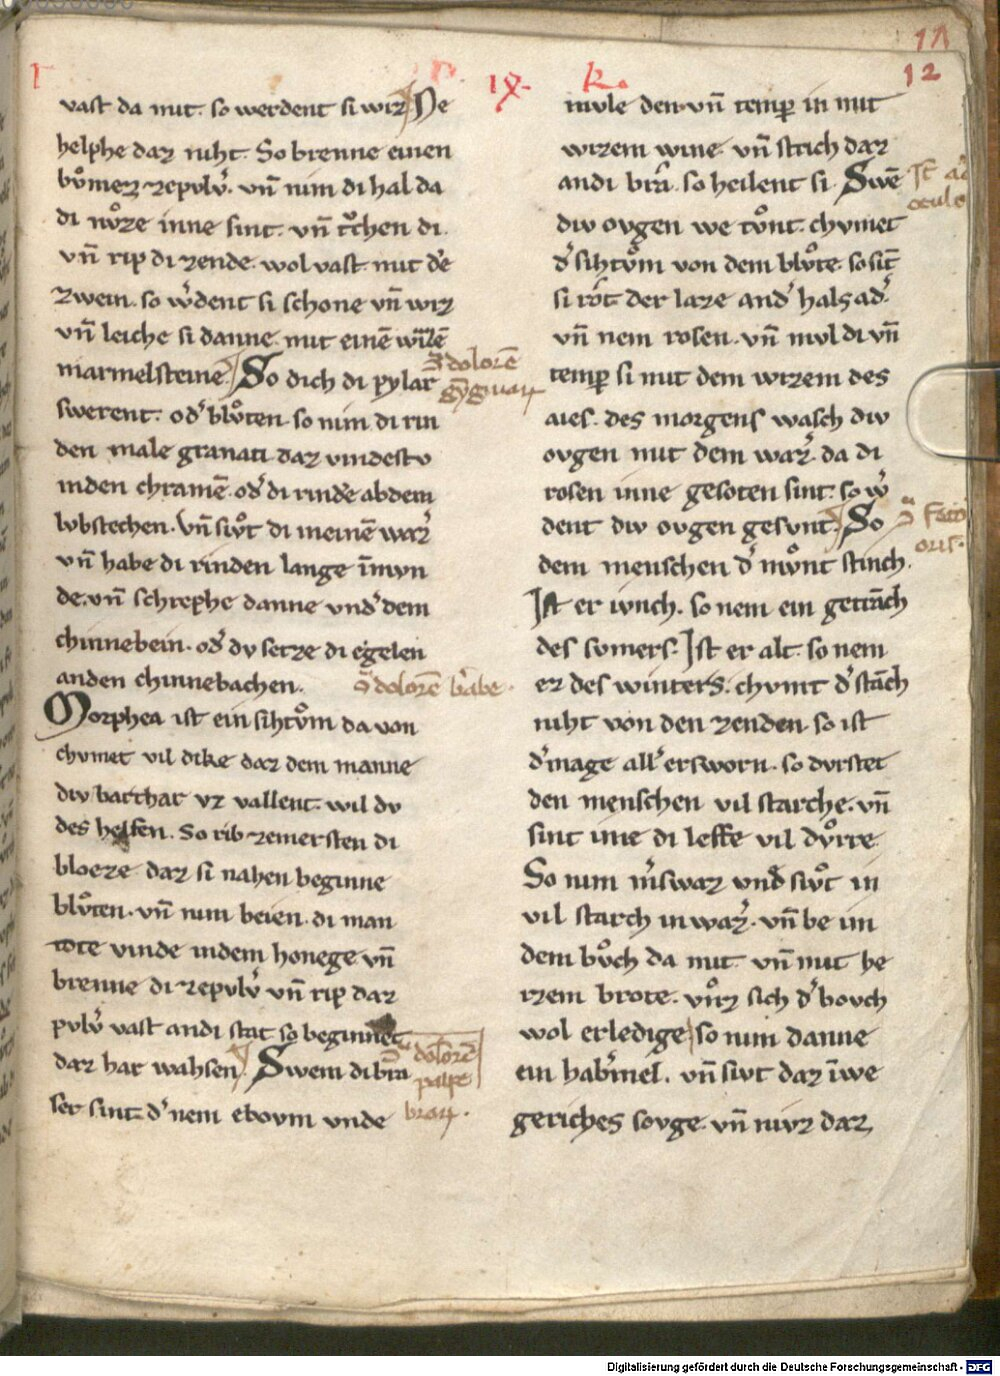 11
12
IX. k.
vast da mit. so werdent si wiz. Ne
helphe daz niht. So brenne einen
bv̊mez zepulv̓. vn̄ nim di hal da
di nv̊ze inne sint. vn̄ trv̊chen di.
vn̄ rip di zende. wol vast mit de
zwein. so w̓dent si schone vn̄ wiz
vn̄ leiche si danne. mit einē wīzē
marmelsteine. So dich di pylar
swerent. od̓ blv̊ten. so nim di rin
den male granati daz vindestv
inden chramē. od̓ di rinde abdem
lvbstechen. vn̄ siv̊t di in einē waz̓
vn̄ habe di rinden lange ī mvn
de. vn̄ schrephe danne vnd̓ dem
chinnebein. od̓ dv setze di egelen
anden chinnebachen.
Morphea ist ein sihtv̊m da von
chvmet vil dike daz dem manne
div batthar vz vallent. wil dv
des helfen. So rib zemersten di
bloeze daz si nahen beginne
blv̊ten. vn̄ nim beien. di man
tote vinde indem honege vn̄
brenne di zepvlv̓ vn̄ rip daz
pvlv̓ vast andi stat so beginnet
daz har wahsen. Swem di bra
ser sint. d̓ nem eboum vnde
dolorē
gīgiuarꝝ
dolorē barbe.
dolorē
palpe
brarꝝ.
mvle den. vn̄ temp̄ in mit
wizem wine. vn̄ strich daz
andi bra. so heilent si. Swē
div ovgen we tv̊nt. chvmet
d̓ sihtv̊m von dem blv̊te. so sīt
si rot der laze and̓ halsad̓.
vn̄ nem rosen. vn̄ mvl di vn̄
temp̄ si mit dem wizem des
aies. des morgens wasch div
ovgen mit dem waz̓ da di
rosen inne gesoten sint. so w̓
dent div ovgen gesvnt. So
dem menschen d̓ mv̊nt stinch.
Ist er ivnch. so nem ein getrāch
des svmers. Ist er alt. so nem
ez des winters. chvmt d̓ stāch
niht von den zenden. so ist
d̓ mage all̓ ersworn. so dvrstet
den menschen vil starche. vn̄
sint ime di leffe vil dv̊rre.
So nim mīswaz vnd siv̊t in
vil starch in waz̓. vn̄ be im
dem bv̊ch da mit. vn̄ mit he
rzem brote. vn̊z sich d̓ bovch
wol erledige. so nim danne
ein hab̓mel. vn̄ sivt daz īwe
geriches sovge. vn̄ nivz daz,
oculo
fetorē
oris.
Digitalisierung gefördert durch die Deutsche Forschungsgemeinschaft - DFG